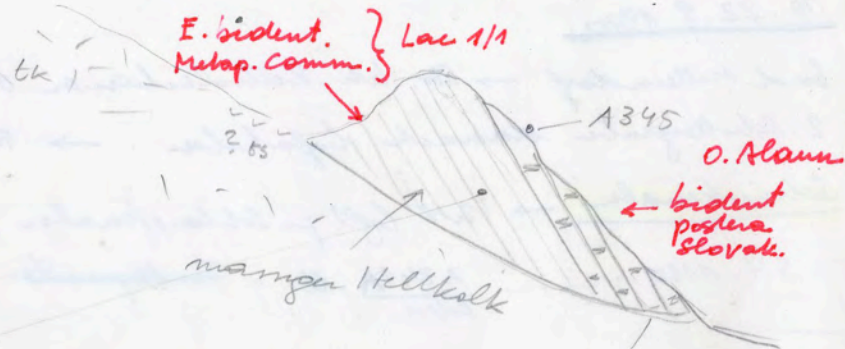 E. bident.
Metap. Comm. } Lac 1/1
tk
? ts
A345
O. Alaun
← bident
postera
Slovak.
Hellkalk